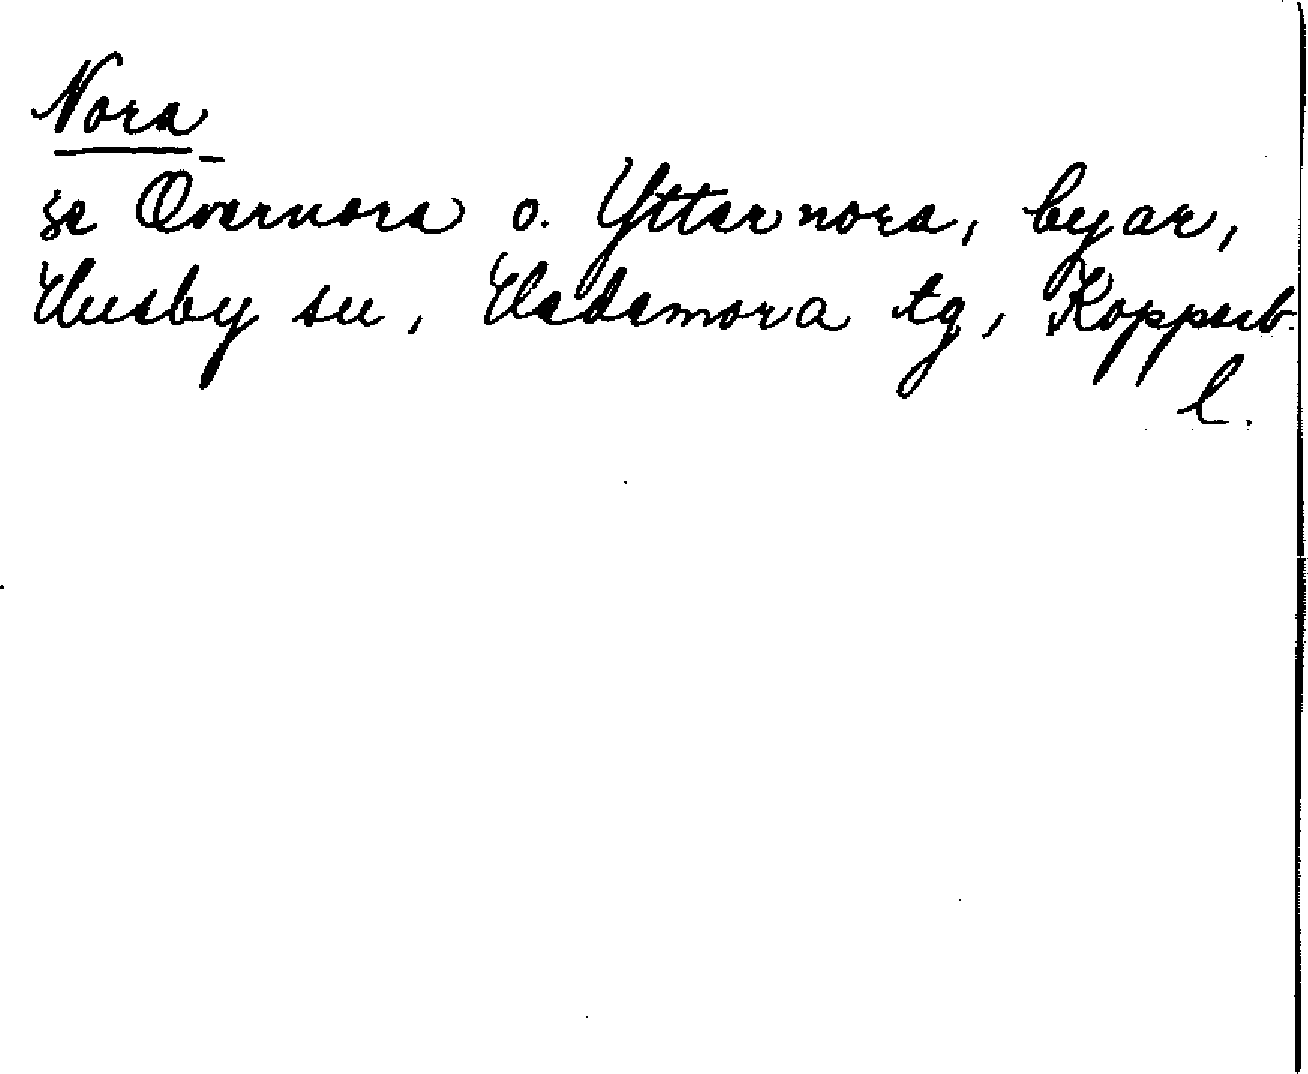 Nora
se Övernora o. Ytternora, byar,
Husby sn, Hedemora tg, Kopparb.
l.